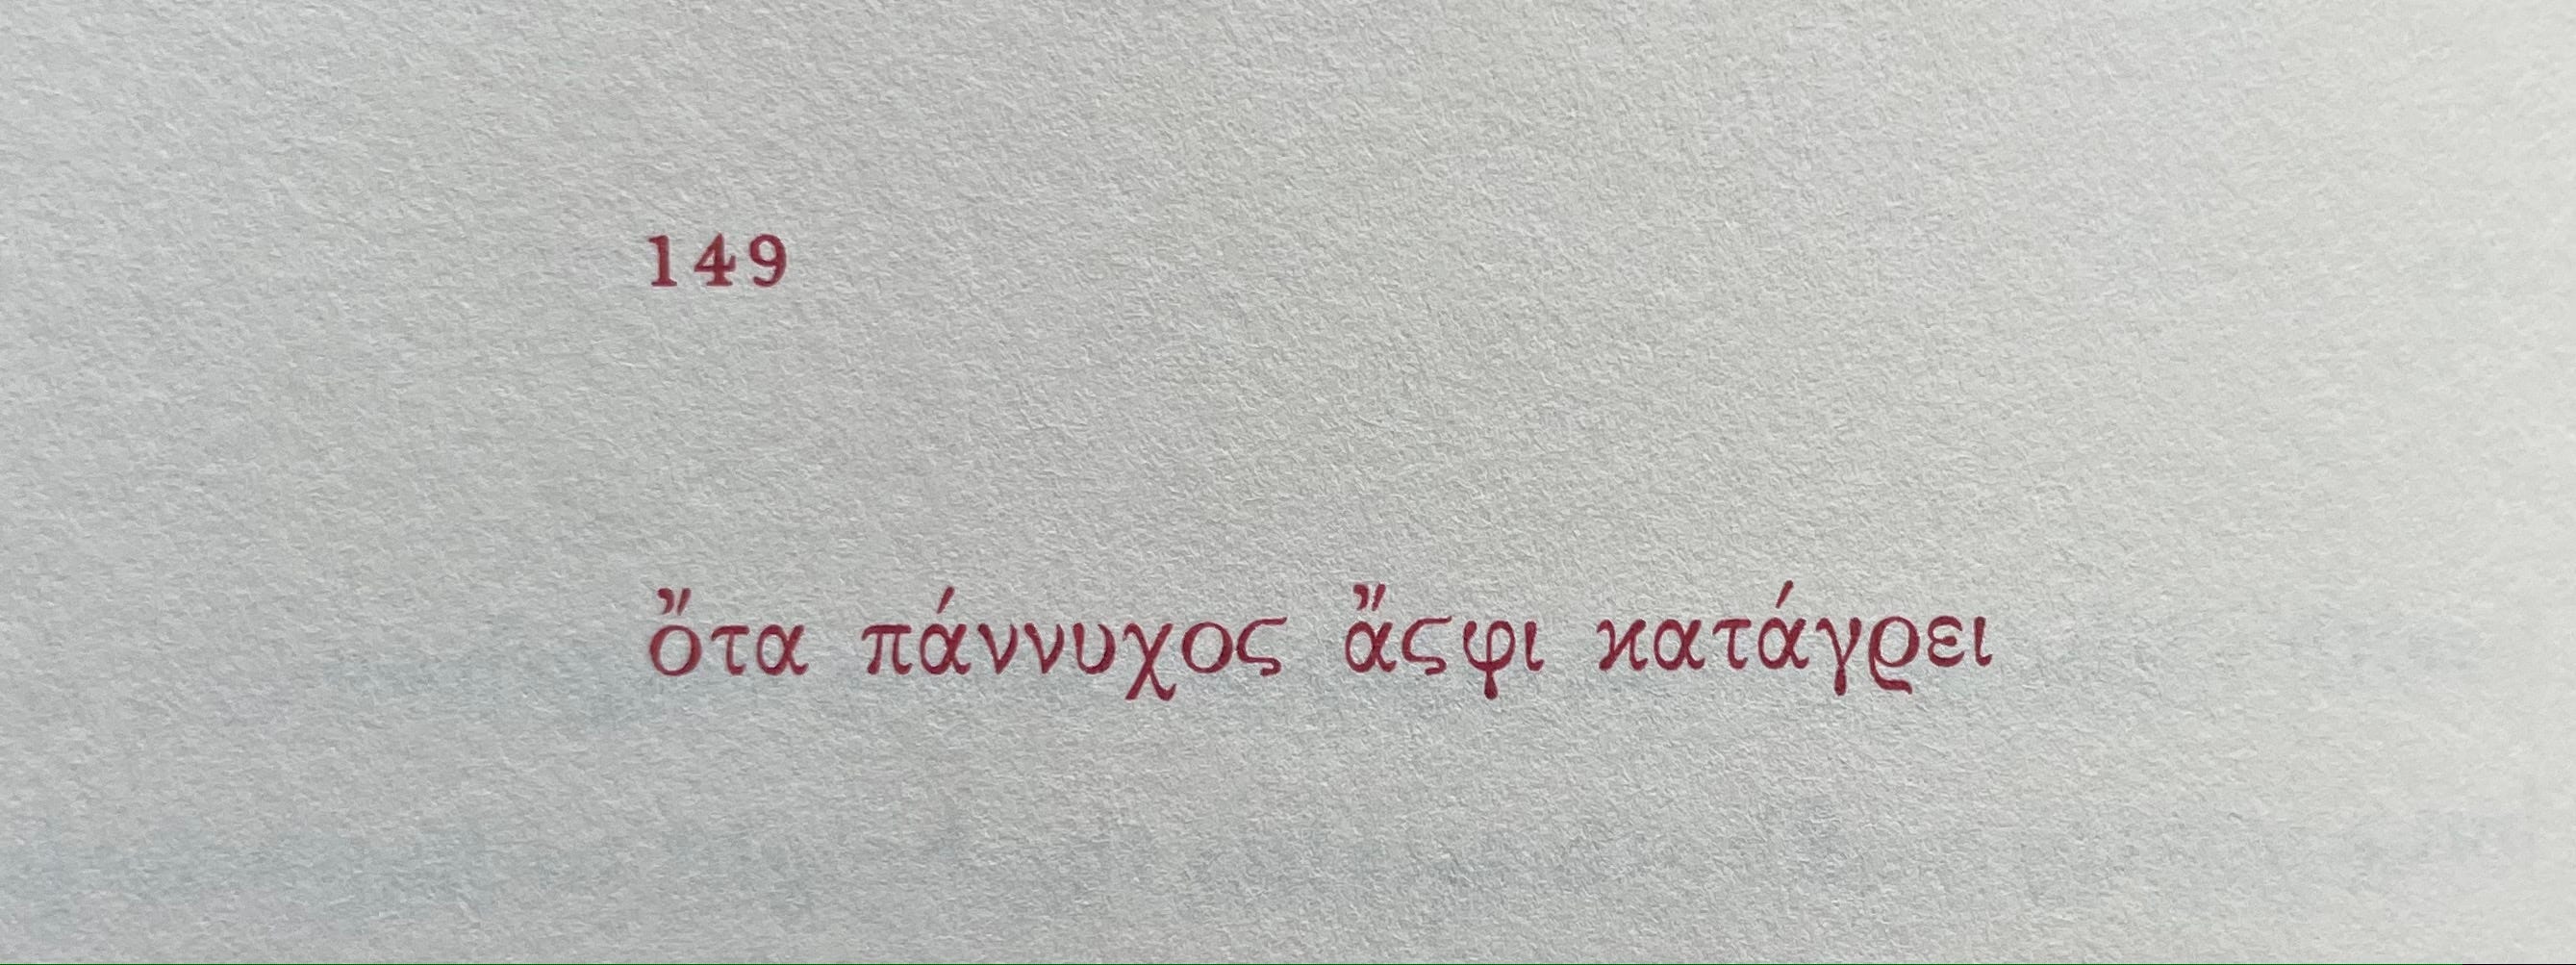 149
ὄτα πάννυχος ἄςφι κατάγρει